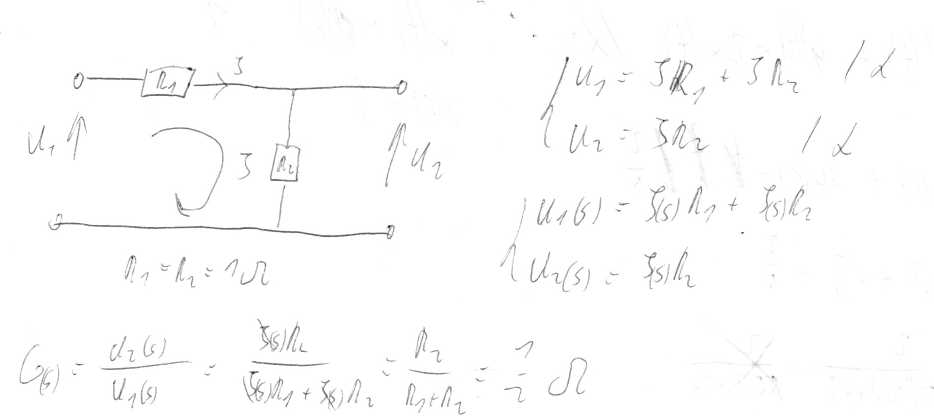 R₁ I
U₁ I R₂ U₂
R₁ = R₂ = 1Ω
U₁ = I R₁ + I R₂ / ℒ
U₂ = I R₂ / ℒ
U₁(s) = I(s) R₁ + I(s) R₂
U₂(s) = I(s) R₂
G(s) = U₂(s) / U₁(s) = I(s) R₂ / I(s) R₁ + I(s) R₂ = R₂ / R₁ + R₂ = 1/2 Ω